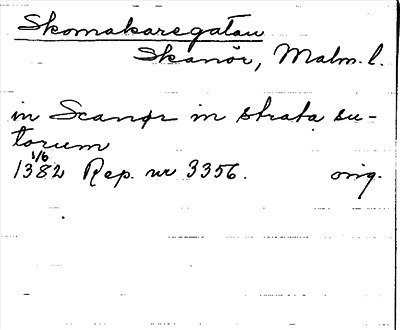 Skomakaregatan
Skanör, Malm. l.
in Scanør in strata su-
torum
1/6
1382 Rep. nr 3356. orig.